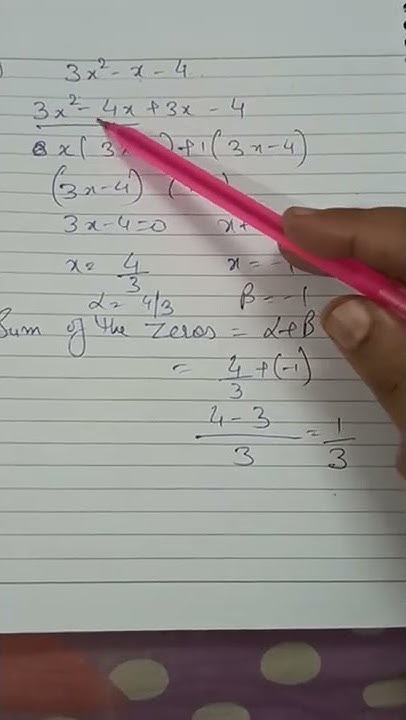 3x² - x - 4
3x² - 4x + 3x - 4
x( 3x ) + 1 ( 3x - 4 )
(3x - 4) (
3x - 4 = 0 x+
x = 4/3 x = -1
α = 4/3 β = -1
Sum of the Zeros = α + β
= 4/3 + (-1)
4 - 3 / 3 = 1/3